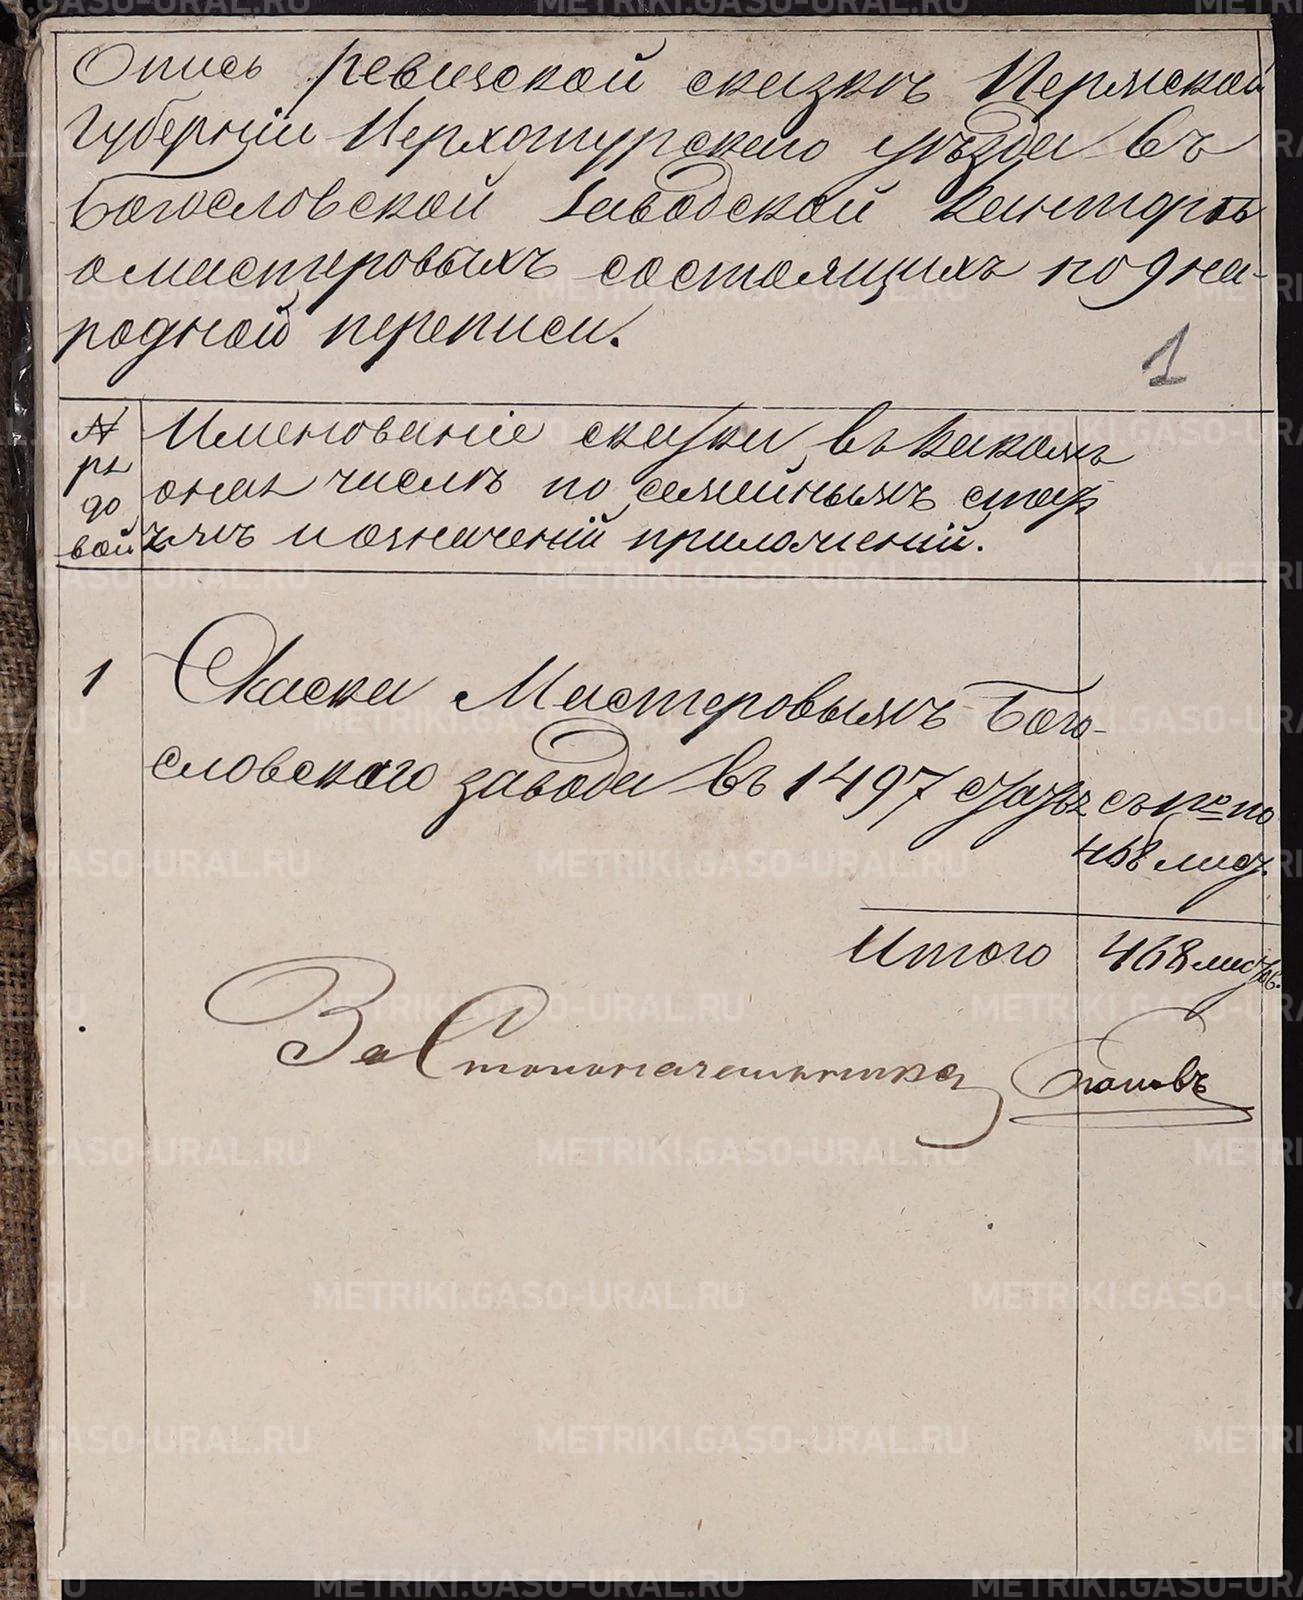 Опись ревизской сказкѣ Пермской
Губерніи Верхотурскаго уѣзда въ
Богословской Заводской Канторѣ
о мастеровыхъ состоящихъ по 9 на-
родной переписи.
1
№
ря
до
вой
Именованіе сказки въ какомъ
оная числѣ по семейнымъ стать
ямъ и означеній приложеній.
1
Скаска Мастеровымъ Бого-
словскаго завода въ 1497 съ 1го по
468 лист.
Итого 468 листов.
За Столоначальника
METRIKI.GASO-URAL.RU